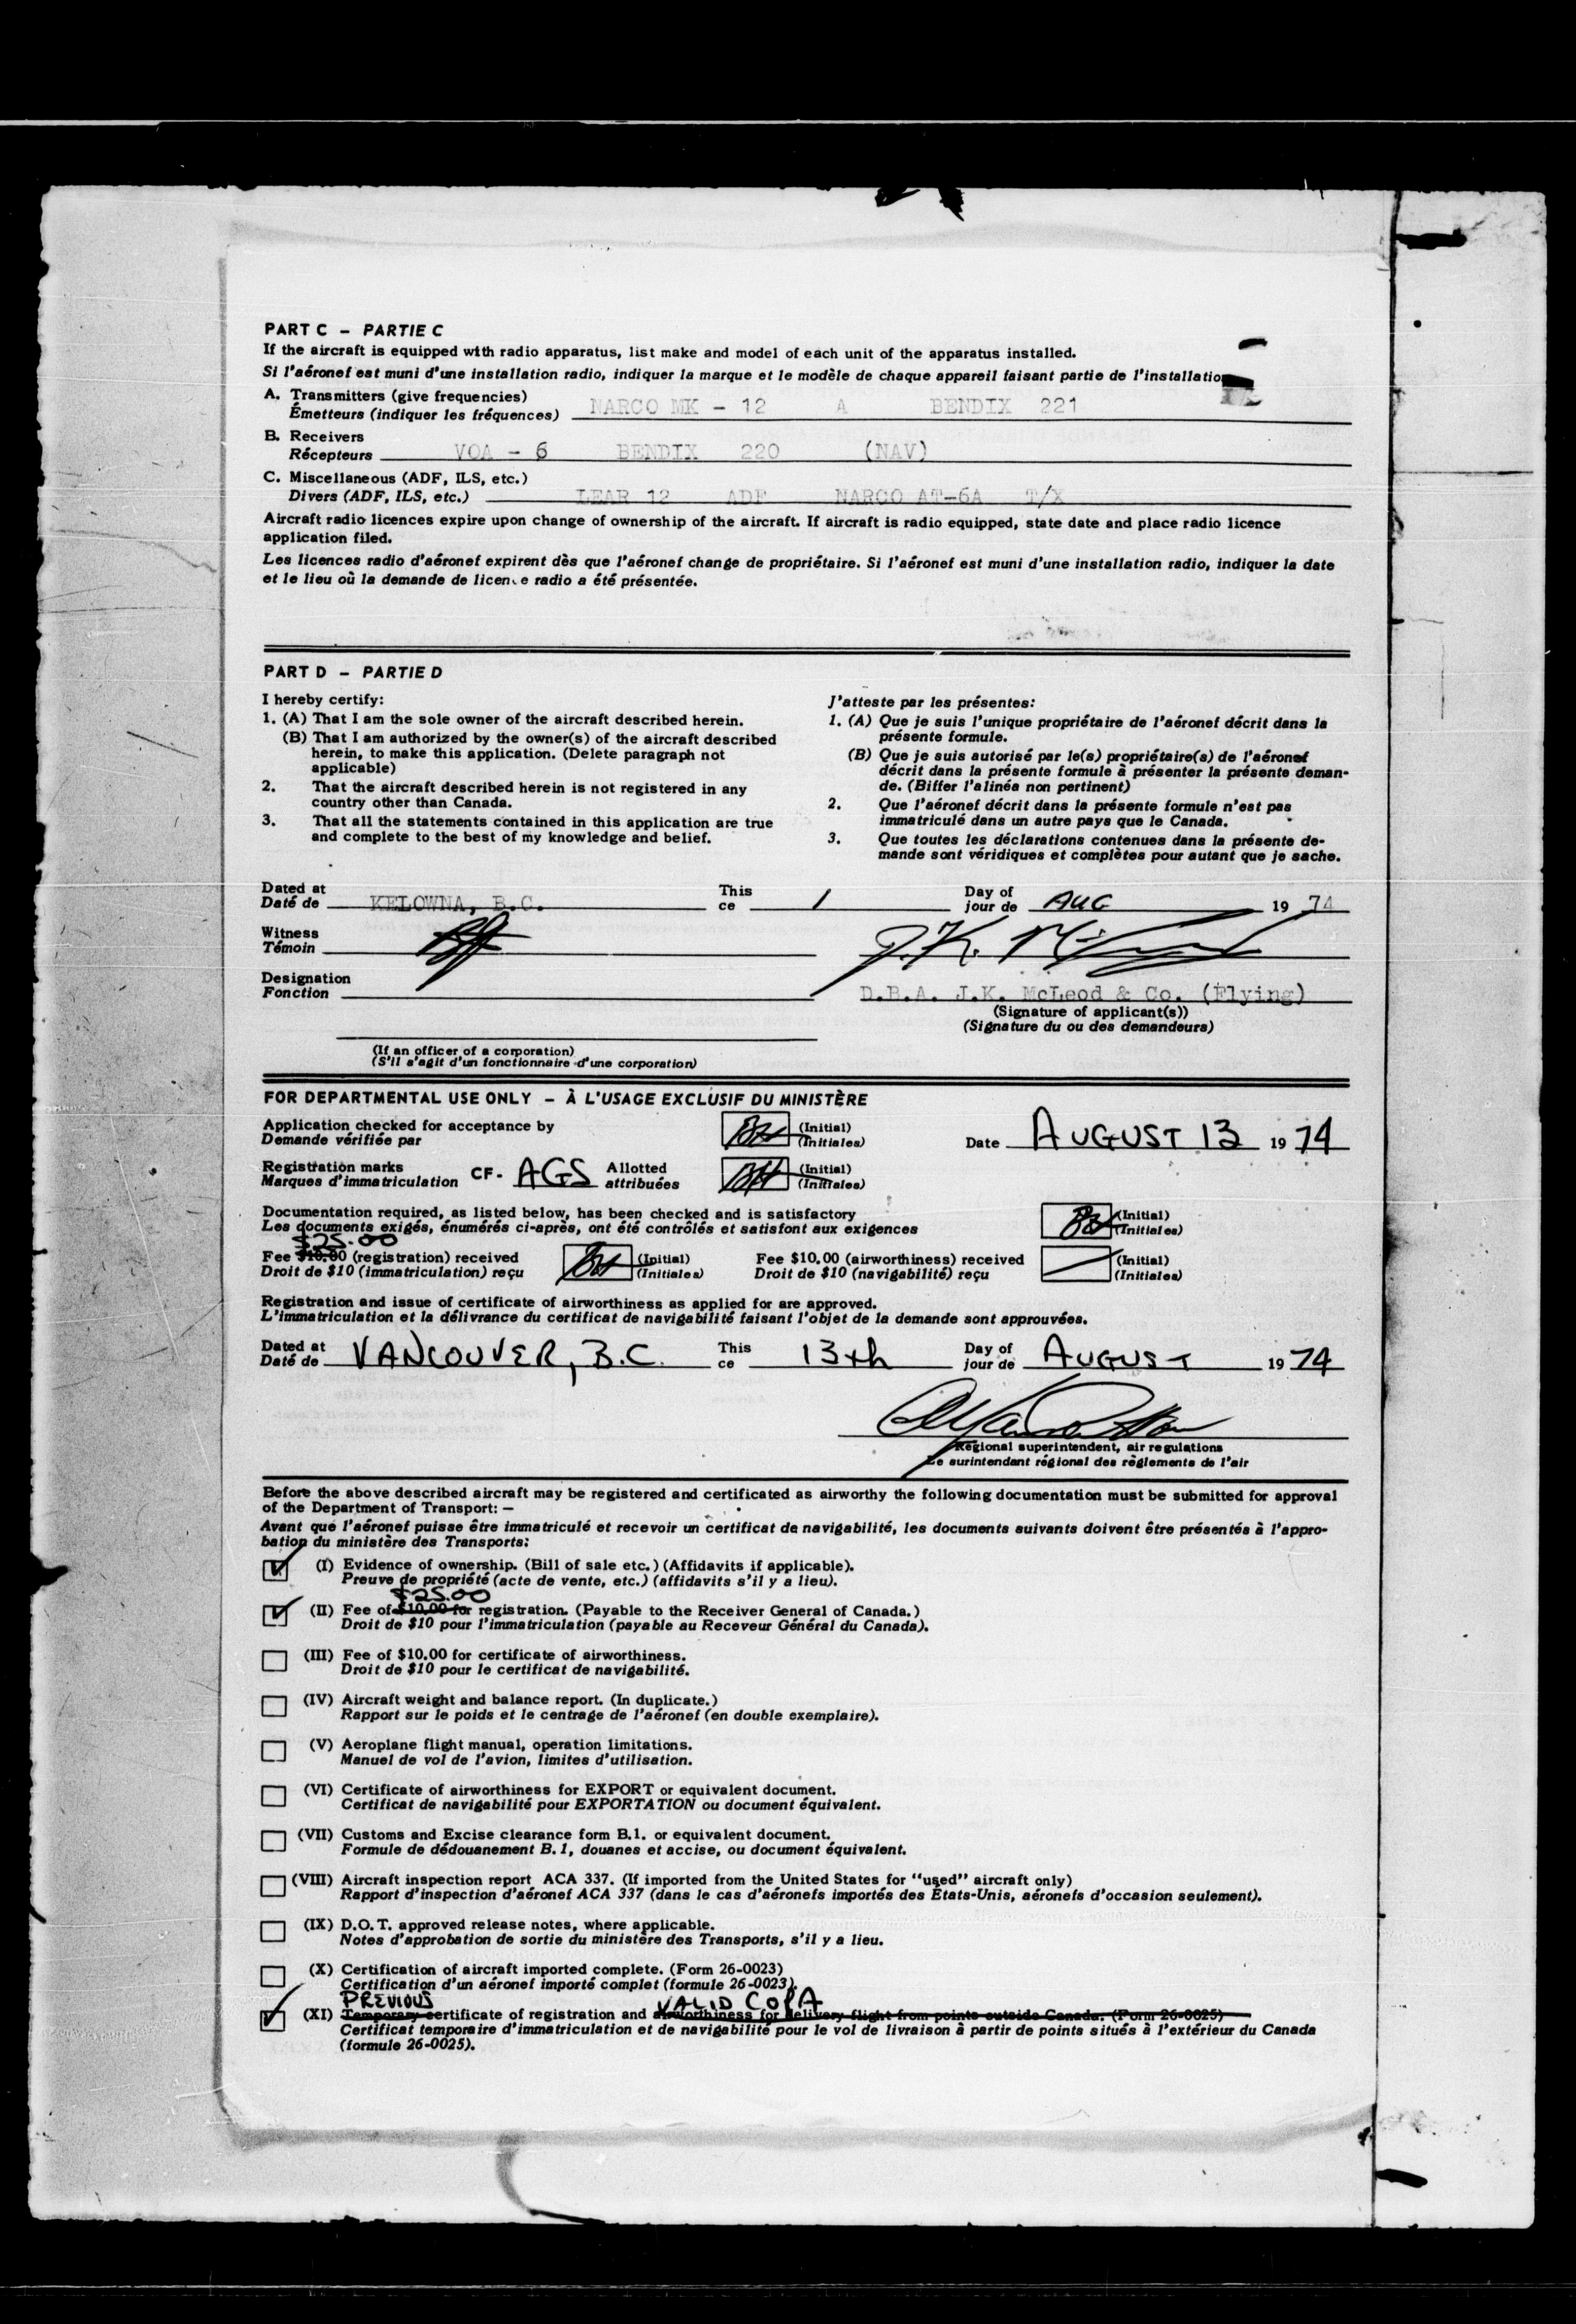 PART C – PARTIE C
If the aircraft is equipped with radio apparatus, list make and model of each unit of the apparatus installed.
Si l'aéronef est muni d'une installation radio, indiquer la marque et le modèle de chaque appareil faisant partie de l'installation
A. Transmitters (give frequencies)
Émetteurs (indiquer les fréquences) NARCO MK - 12 A BENDIX 221
B. Receivers
Récepteurs VOA - 6 BENDIX 220 (NAV)
C. Miscellaneous (ADF, ILS, etc.)
Divers (ADF, ILS, etc.) LEAR 12 ADF NARCO AT-6A T/X
Aircraft radio licences expire upon change of ownership of the aircraft. If aircraft is radio equipped, state date and place radio licence
application filed.
Les licences radio d'aéronef expirent dès que l'aéronef change de propriétaire. Si l'aéronef est muni d'une installation radio, indiquer la date
et le lieu où la demande de licence radio a été présentée.
PART D – PARTIE D
I hereby certify:
1. (A) That I am the sole owner of the aircraft described herein.
(B) That I am authorized by the owner(s) of the aircraft described
herein, to make this application. (Delete paragraph not
applicable)
2. That the aircraft described herein is not registered in any
country other than Canada.
3. That all the statements contained in this application are true
and complete to the best of my knowledge and belief.
J'atteste par les présentes:
1. (A) Que je suis l'unique propriétaire de l'aéronef décrit dans la
présente formule.
(B) Que je suis autorisé par le(s) propriétaire(s) de l'aéronef
décrit dans la présente formule à présenter la présente deman-
de. (Biffer l'alinéa non pertinent)
2. Que l'aéronef décrit dans la présente formule n'est pas
immatriculé dans un autre pays que le Canada.
3. Que toutes les déclarations contenues dans la présente de-
mande sont véridiques et complètes pour autant que je sache.
Dated at This Day of
Daté de KELOWNA, B.C. ce 1 jour de AUG 19 74
Witness
Témoin J.K.
Designation
Fonction D.B.A. J.K. McLeod & Co. (Flying)
(Signature of applicant(s))
(Signature du ou des demandeurs)
(If an officer of a corporation)
(S'il s'agit d'un fonctionnaire d'une corporation)
FOR DEPARTMENTAL USE ONLY – À L'USAGE EXCLUSIF DU MINISTÈRE
Application checked for acceptance by (Initial)
Demande vérifiée par (Initiales) Date AUGUST 13 19 74
Registration marks CF- AGS Allotted BH (Initial)
Marques d'immatriculation attribuées (Initiales)
Documentation required, as listed below, has been checked and is satisfactory (Initial)
Les documents exigés, énumérés ci-après, ont été contrôlés et satisfont aux exigences (Initiales)
$25.00
Fee $10.00 (registration) received (Initial) Fee $10.00 (airworthiness) received (Initial)
Droit de $10 (immatriculation) reçu (Initiales) Droit de $10 (navigabilité) reçu (Initiales)
Registration and issue of certificate of airworthiness as applied for are approved.
L'immatriculation et la délivrance du certificat de navigabilité faisant l'objet de la demande sont approuvées.
Dated at This Day of
Daté de VANCOUVER, B.C. ce 13th jour de AUGUST 19 74
Regional superintendent, air regulations
Le surintendant régional des règlements de l'air
Before the above described aircraft may be registered and certificated as airworthy the following documentation must be submitted for approval
of the Department of Transport: –
Avant que l'aéronef puisse être immatriculé et recevoir un certificat de navigabilité, les documents suivants doivent être présentés à l'appro-
bation du ministère des Transports:
(I) Evidence of ownership. (Bill of sale etc.) (Affidavits if applicable).
Preuve de propriété (acte de vente, etc.) (affidavits s'il y a lieu).
$25.00
(II) Fee of $10.00 for registration. (Payable to the Receiver General of Canada.)
Droit de $10 pour l'immatriculation (payable au Receveur Général du Canada).
(III) Fee of $10.00 for certificate of airworthiness.
Droit de $10 pour le certificat de navigabilité.
(IV) Aircraft weight and balance report. (In duplicate.)
Rapport sur le poids et le centrage de l'aéronef (en double exemplaire).
(V) Aeroplane flight manual, operation limitations.
Manuel de vol de l'avion, limites d'utilisation.
(VI) Certificate of airworthiness for EXPORT or equivalent document.
Certificat de navigabilité pour EXPORTATION ou document équivalent.
(VII) Customs and Excise clearance form B.1. or equivalent document.
Formule de dédouanement B.1, douanes et accise, ou document équivalent.
(VIII) Aircraft inspection report ACA 337. (If imported from the United States for "used" aircraft only)
Rapport d'inspection d'aéronef ACA 337 (dans le cas d'aéronefs importés des États-Unis, aéronefs d'occasion seulement).
(IX) D.O.T. approved release notes, where applicable.
Notes d'approbation de sortie du ministère des Transports, s'il y a lieu.
(X) Certification of aircraft imported complete. (Form 26-0023)
Certification d'un aéronef importé complet (formule 26-0023).
PREVIOUS VALID C of A
(XI) Temporary certificate of registration and airworthiness for delivery flight from points outside Canada. (Form 26-0025)
Certificat temporaire d'immatriculation et de navigabilité pour le vol de livraison à partir de points situés à l'extérieur du Canada
(formule 26-0025).